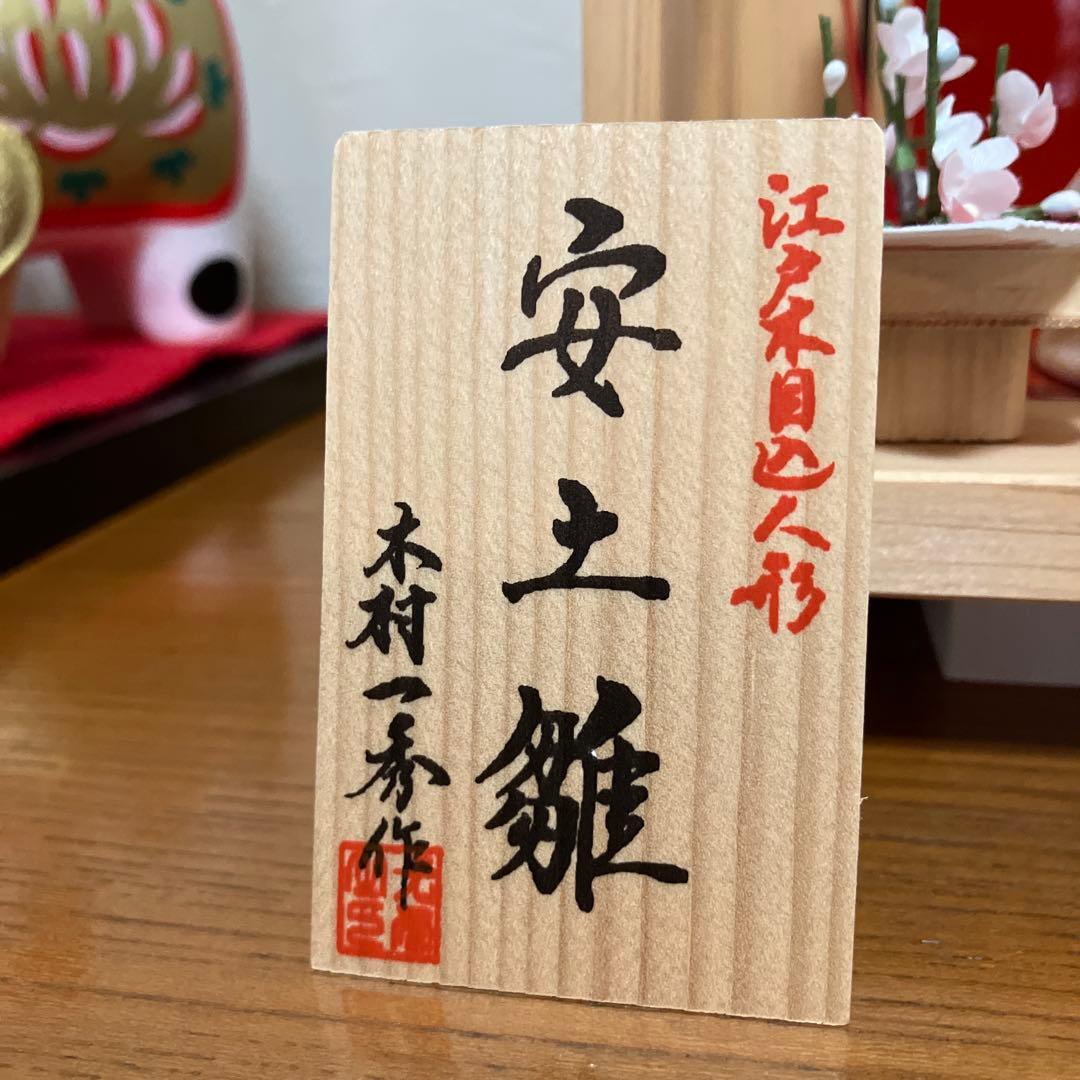 江戸木目込人形
安土雛
木村一秀作